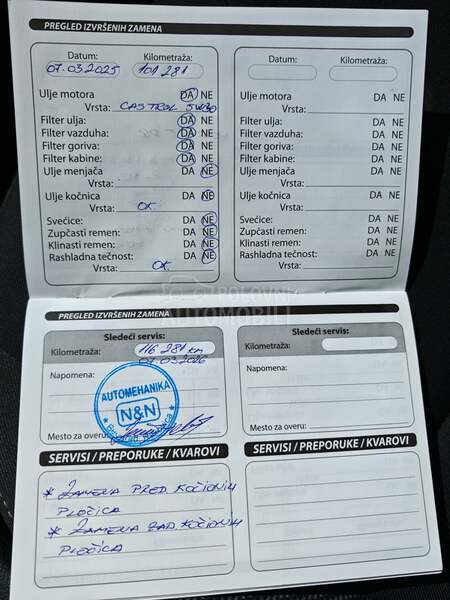 PREGLED IZVRŠENIH ZAMENA
Datum: Kilometraža:
07.03.2025 101 281
Ulje motora DA NE
Vrsta: CASTROL 5W30
Filter ulja: DA NE
Filter vazduha: DA NE
Filter goriva: DA NE
Filter kabine: DA NE
Ulje menjača DA NE
Vrsta:
Ulje kočnica NE
Vrsta: OK.
Svećice: DA NE
Zupčasti remen: DA NE
Klinasti remen: DA NE
Rashladna tečnost: DA NE
Vrsta: OK.
Datum: Kilometraža:
Ulje motora DA NE
Vrsta:
Filter ulja: DA NE
Filter vazduha: DA NE
Filter goriva: DA NE
Filter kabine: DA NE
Ulje menjača DA NE
Vrsta:
Ulje kočnica DA NE
Vrsta:
Svećice: DA NE
Zupčasti remen: DA NE
Klinasti remen: DA NE
Rashladna tečnost: DA NE
Vrsta:
POLOVNI
AUTOMOBILI
PREGLED IZVRŠENIH ZAMENA
Sledeći servis:
Kilometraža: 116 281 km
07.03.2026
Napomena:
AUTOMEHANIKA
N&N
Mesto za overu:
SERVISI / PREPORUKE / KVAROVI
* ZAMENA PRED KOČIONIH
PLOČICA
* ZAMENA ZAD KOČIONIH
PLOČICA
Sledeći servis:
Kilometraža:
Napomena:
Mesto za overu:
SERVISI / PREPORUKE / KVAROVI